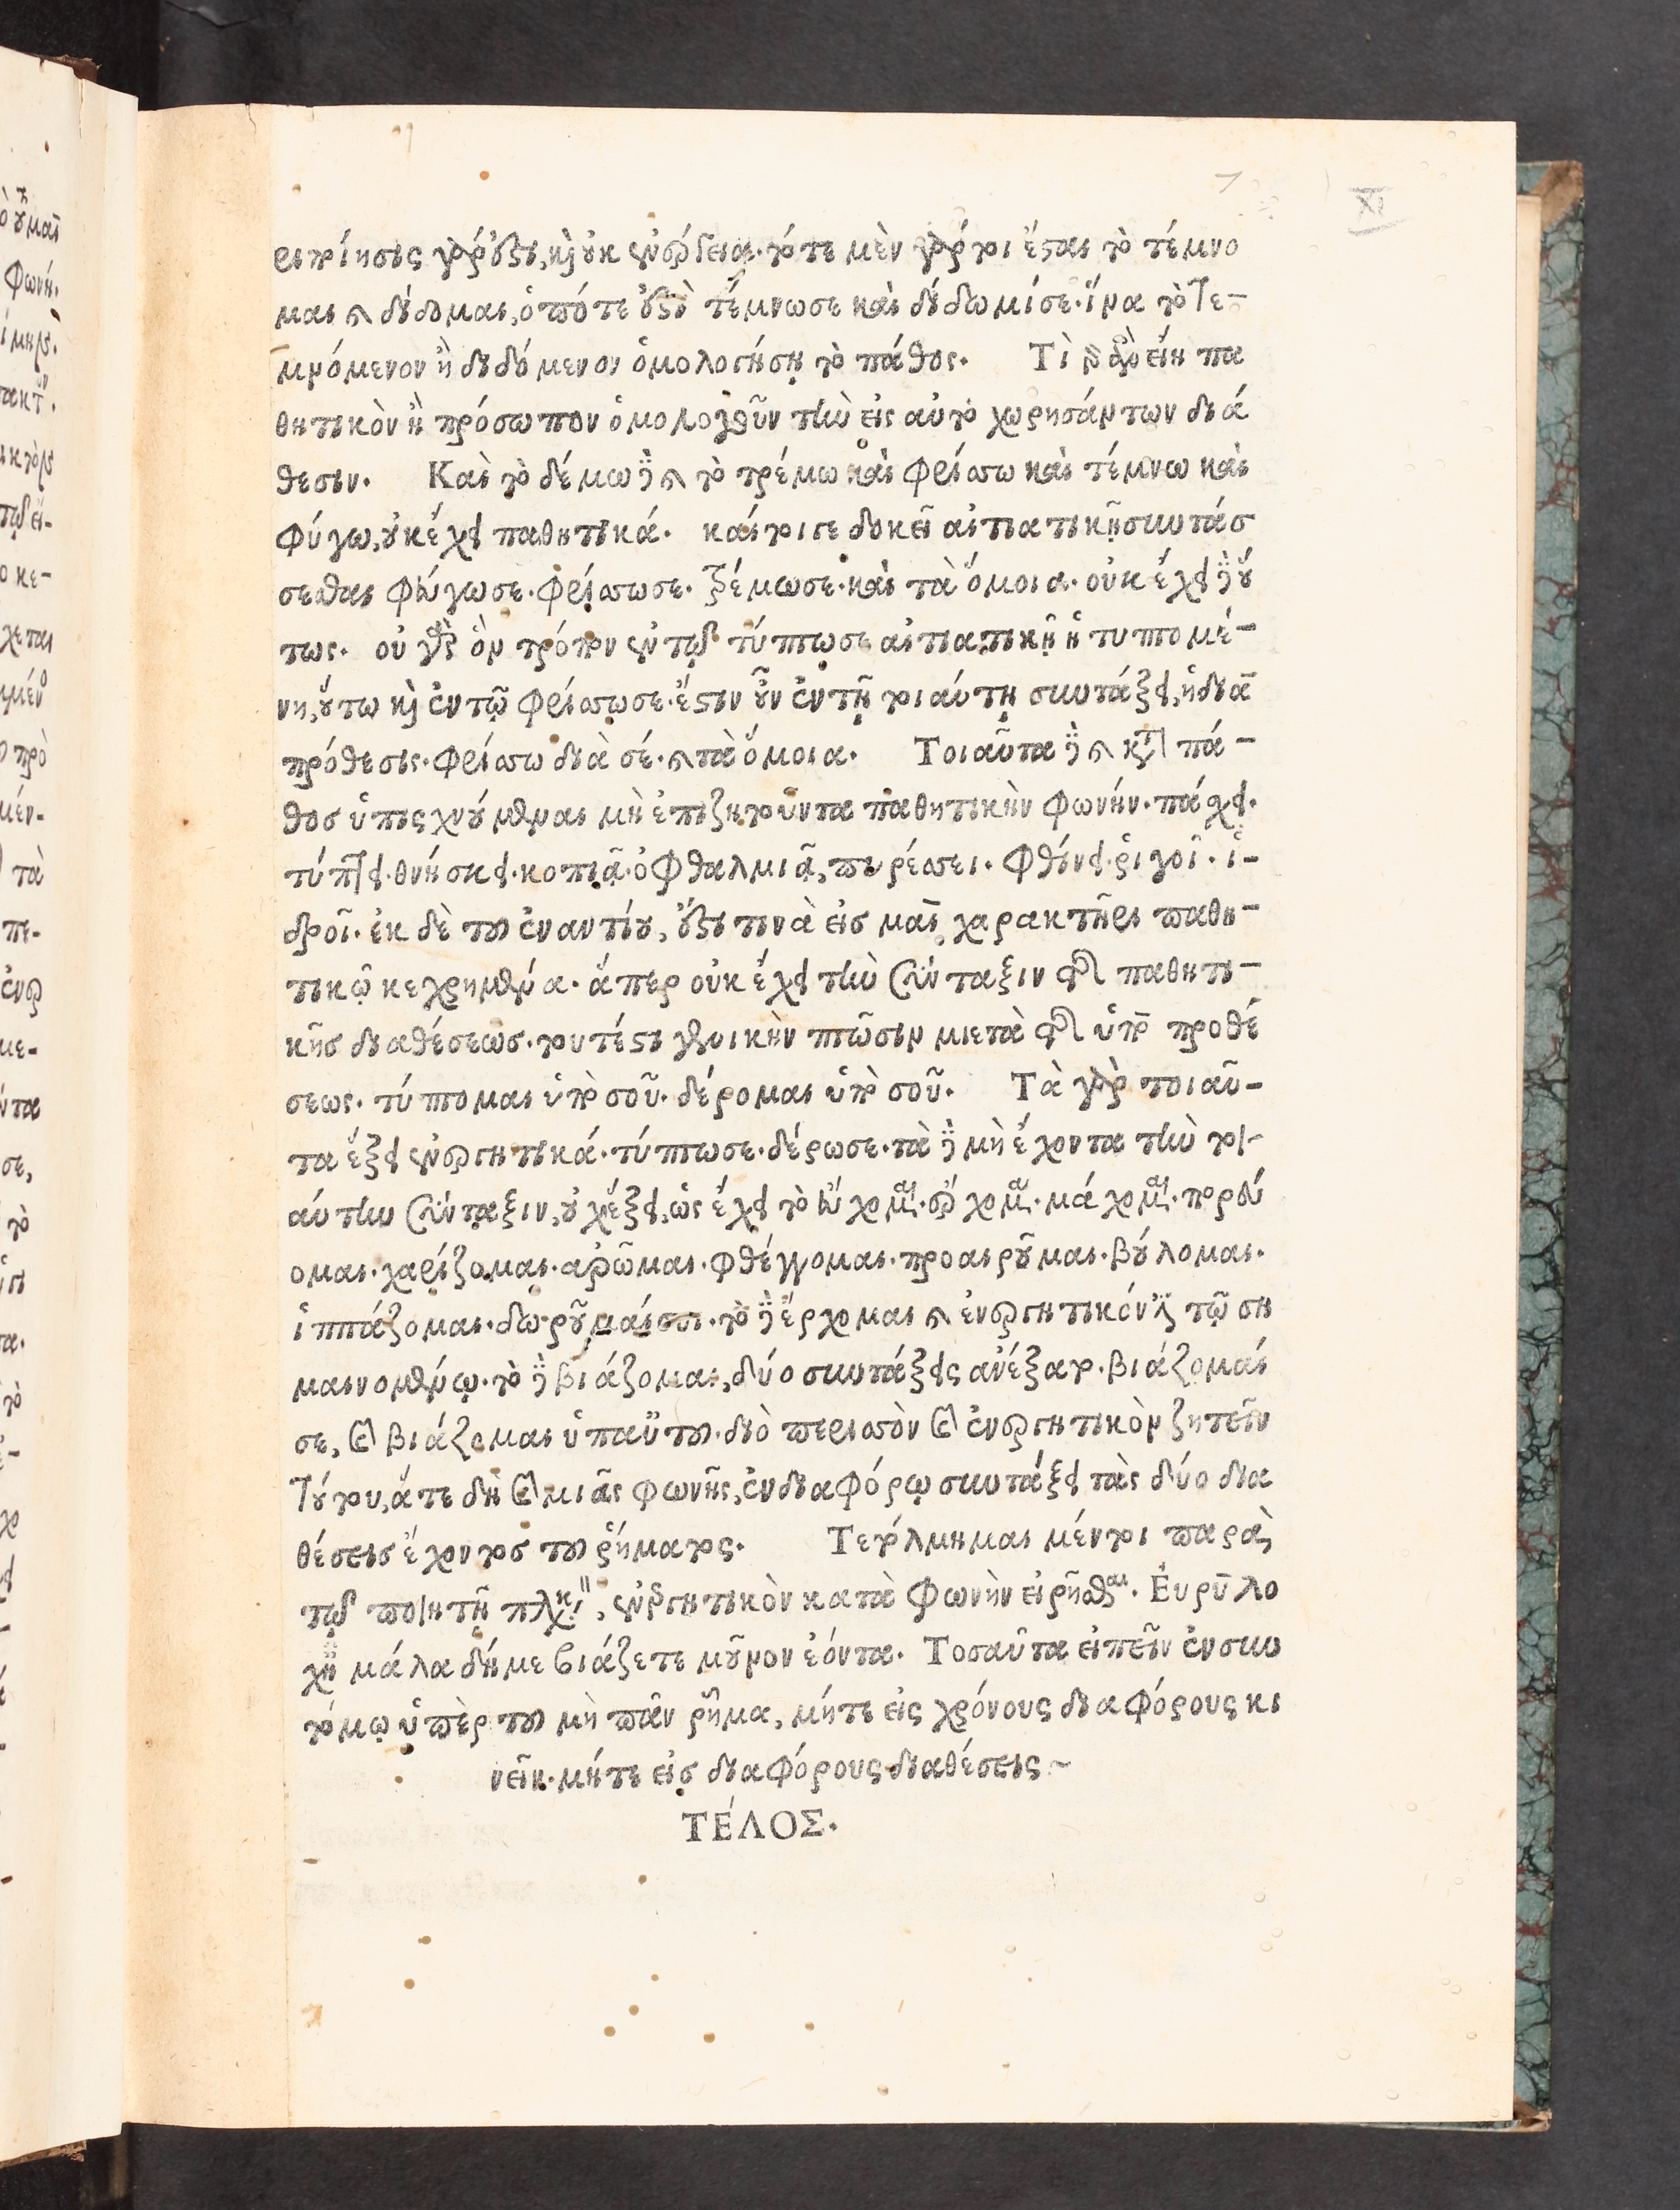 ριποίησις γάρ ἐστι, καὶ οὐκ ἐνέργεια. τότε μὲν γάρ τοι ἔσται τὸ τέμνο
μαι καὶ δίδομαι, ὁπότε ἐστὶ τέμνωσε καὶ δίδωμίσε. ἵνα τὸ τε-
μνόμενον ἢ διδόμενον ὁμολογήσῃ τὸ πάθος. Τί γὰρ εἴη πα
θητικὸν ἢ πρόσωπον ὁμολογοῦν τὴν εἰς αὐτὸ χωρησάντων διά
θεσιν. Καὶ τὸ δέμω δὲ καὶ τὸ τρέμω καὶ φρίσσω καὶ τέμνω καὶ
φύγω, οὐκ ἔχει παθητικά. καίτοισε δοκεῖ αἰτιατικῇ συντάσ
σεσθαι φεύγωσε. φρίσσωσε. τρέμωσε. καὶ τὰ ὅμοια. οὐκ ἔχει δὲ οὕ
τως. οὐ γὰρ ὃν τρόπον ἐν τῷ τύπτωσε αἰτιατικὴ ἡ τυπτομέ-
νη, οὕτω καὶ ἐν τῷ φρίσσωσε. ἔστιν οὖν ἐν τῇ τοιαύτῃ συντάξει, ἡ διὰ
πρόθεσις. φρίσσω διὰ σέ. καὶ τὰ ὅμοια. Τοιαῦτα δὲ καὶ κατὰ πά-
θος ὑπισχνούμεναι μὴ ἐπιζητοῦντα παθητικὴν φωνήν. πάσχει.
τύπτει. θνήσκει. κοπιᾷ. ὀφθαλμιᾷ, πυρέσσει. φθίνει. ῥιγοῖ. ἱ-
δροῖ. ἐκ δὲ τοῦ ἐναντίου, ἔστι τινὰ εἰς μαι χαρακτῆρι παθη-
τικῷ κεχρημένα. ἅπερ οὐκ ἔχει τὴν σύνταξιν τῆς παθητι-
κῆς διαθέσεως. τουτέστι γενικὴν πτῶσιν μετὰ τῆς ὑπὸ προθέ
σεως. τύπτομαι ὑπὸ σοῦ. δέρομαι ὑπὸ σοῦ. Τὰ γὰρ τοιαῦ-
τα ἕξει ἐνεργητικά. τύπτωσε. δέρωσε. τὰ δὲ μὴ ἔχοντα τὴν τοι-
αύτην σύνταξιν, οὐχ ἕξει, ὡς ἔχει τὸ εὔχομαι. τρέχομαι. μάχομαι. πορεύ
ομαι. χαρίζομαι. ἀρῶμαι. φθέγγομαι. προαιροῦμαι. βούλομαι.
ἱππάζομαι. δωροῦμαίσοι. τὸ δὲ ἔρχομαι καὶ ἐνεργητικόν ἐστι τῷ ση
μαινομένῳ. τὸ δὲ βιάζομαι, δύο συντάξεις ἀνέξατο. βιάζομαί
σε, καὶ βιάζομαι ὑπαὐτοῦ. διὸ περισσὸν καὶ ἐνεργητικὸν ζητεῖν
τούτου, ἅτε δὴ καὶ μιᾶς φωνῆς, ἐν διαφόρῳ συντάξει τὰς δύο δια
θέσεις ἔχοντος τοῦ ῥήματος. Τετόλμημαι μέντοι παρὰ
τῷ ποιητῇ, ἐνεργητικὸν κατὰ φωνὴν εἰρῆσθαι. Ἐυρύλο
χῆ μάλα δή με βιάζετε μοῦνον ἐόντα. Τοσαῦτα εἰπεῖν ἐν συν
τόμῳ ὑπὲρ τοῦ μὴ πᾶν ῥῆμα, μήτε εἰς χρόνους διαφόρους κι
νεῖν. μήτε εἰς διαφόρους διαθέσεις ~
ΤΈΛΟΣ.
XI